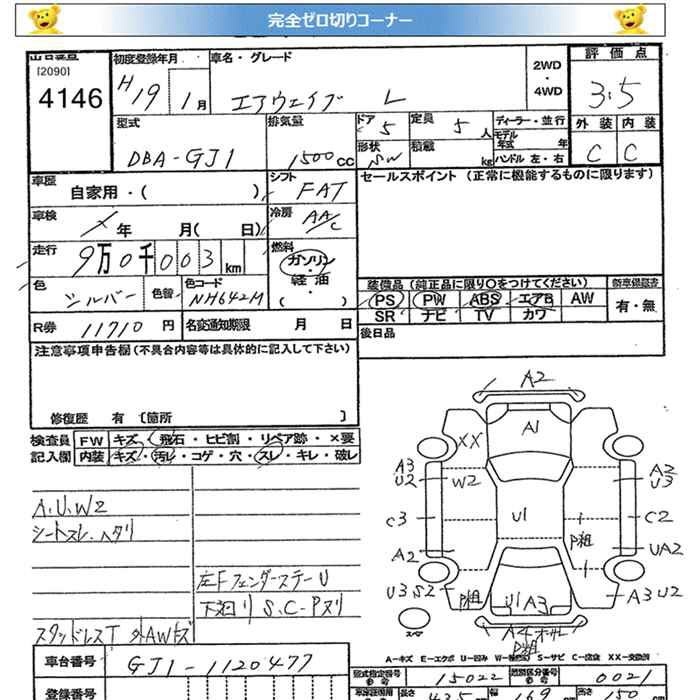 完全ゼロ切りコーナー
出品番号
[2090]
4146
初度登録年月
H19 1月
車名・グレード
エアウェイブ L
2WD
・
4WD
評価点
3.5
型式
DBA-GJ1
排気量
1500 CC
ドア 5
定員 5 人
ディーラー・並行
モデル年式 年
ハンドル 左・右
形状 SW
積載 kg
外装 内装
C C
車歴
自家用・( )
シフト FAT
セールスポイント (正常に機能するものに限ります)
車検 年 月( 日)
冷房 AA/C
走行 9万0千003 km
燃料 ガソリン・軽油・( )
色 シルバー
色替
色コード NH642M
装備品 (純正品に限り○をつけてください)
新車保証書
PS PW ABS エアB AW
有・無
SR ナビ TV カワ
R券 11710 円
名変通知期限 月 日
後日品
注意事項申告欄 (不具合内容等は具体的に記入して下さい)
修復歴 有 〔箇所 〕
検査員 FW キズ・飛石・ヒビ割・リペア跡・×要
記入欄 内装 キズ・汚レ・コゲ・穴・スレ・キレ・破レ
A2
A1
XX
W2
U1
A3
U2
A2
U3
C3
C2
P粗
A2
UA2
U3 S2
P粗
U1 A3
A3 U2
スペア
P粗
A.U.W2
シートスレ.ヘタリ
左Fフェンダーステー U
下廻リ S.C-Pヌリ
スタッドレスT 外AWキズ
A-キズ E-エクボ U-凹み S-サビ XX-交換済
車台番号 GJ1-1120477
型式指定番号 15022
類別区分番号 0021
登録番号
長さ 435 幅 169 高さ 150